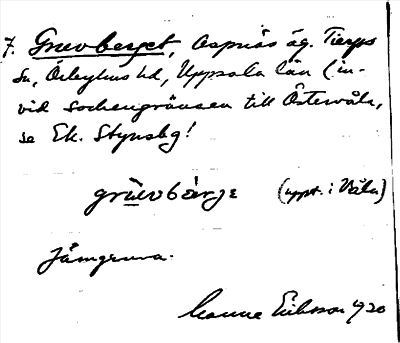 7. Gruvberget, Aspnäs äg. Tierps
sn, Örbyhus hd, Uppsala län (in-
vid sockengränsen till Östervåla,
se Ek. Stynsbg!
grùvbàrje (uppt. i Våla)
Järngruva.
Hanna Eriksson 1920